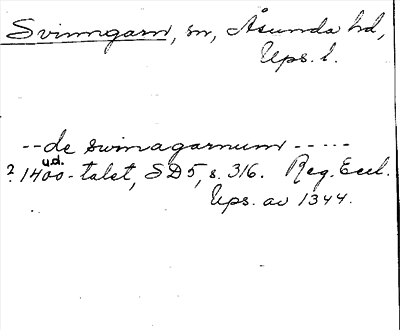 Svinngarn, sn, Åsunda hd,
Ups. l.
--de swinagarnum-----
u.d.
? 1400-talet, SD5, s. 316. Reg. Eccl.
Ups. av 1344.